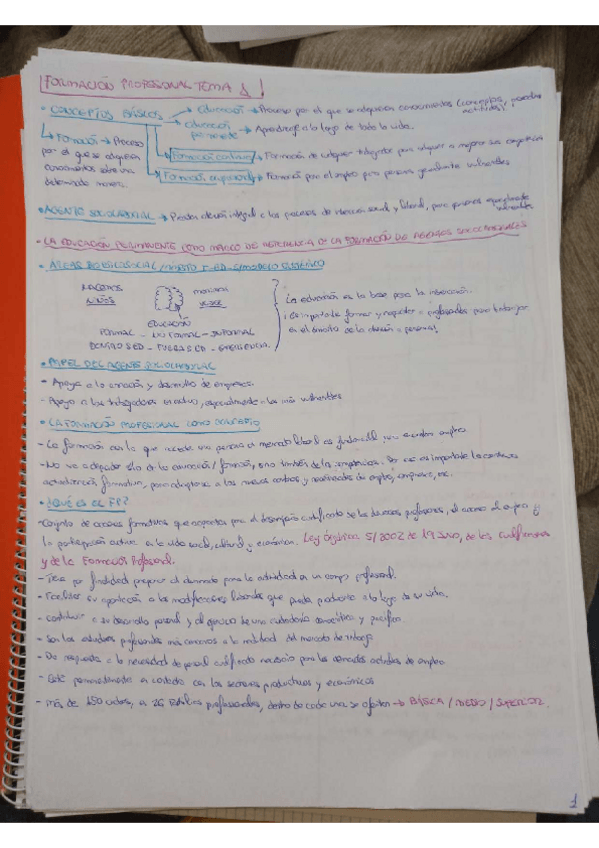 FORMACIÓN PROFESIONAL TEMA 1
• CONCEPTOS BÁSICOS → Educación → Proceso por el que se adquieren conocimientos (conceptos,
actitudes).
→ educación permanente → Aprendizaje a lo largo de toda la vida.
↳ Formación → Proceso
por el que se adquieren
conocimientos sobre una
determinada materia.
Formación continua → Formación de cualquier trabajador para adquirir o mejorar sus competencias
Formación ocupacional → Formación para el empleo para personas generalmente vulnerables
• AGENTE SOCIOLABORAL → Prestan atención integral a los procesos de inserción social y laboral, para personas especialmente
vulnerables
- LA EDUCACIÓN PERMANENTE COMO MARCO DE REFERENCIA DE LA FORMACIÓN DE AGENTES SOCIOLABORALES
EDUCACIÓN
FORMAL - NO FORMAL - INFORMAL
La educación es la base para la interacción.
¡Es importante formar y a profesionales para trabajar
en el ámbito de la atención a personas!
• PAPEL DEL AGENTE SOCIOLABORAL
- Apoya a la creación y desarrollo de empresas.
- Apoyo a los trabajadores en activo, especialmente a los más vulnerables
• LA FORMACIÓN PROFESIONAL COMO CONCEPTO
- La formación con la que accede una persona al mercado laboral es fundamental para encontrar empleo.
- No va a depender sólo de la formación, sino también de las competencias. Por eso es importante la continua
actualización formativa, para adaptarse a los nuevos cambios y necesidades de empleo, empresa, etc.
• ¿QUÉ ES EL FP?
- Conjunto de acciones formativas que capacitan para el desempeño cualificado de las diversas profesiones, el acceso al empleo y
la participación activa en la vida social, cultural y económica. Ley Orgánica 5/2002 de 19 Junio, de las Cualificaciones
y de la Formación Profesional.
- Tiene por finalidad preparar al alumnado para la actividad en un campo profesional.
- Facilitar su adaptación a las modificaciones laborales que pueda producirse a lo largo de su vida.
- Contribuir a su desarrollo personal y al ejercicio de una ciudadanía democrática y pacífica.
- Son los estudios profesionales más cercanos a la realidad del mercado de trabajo
- Da respuesta a la necesidad de personal cualificado necesario para las demandas actuales de empleo
- Está permanentemente en contacto con los sectores productivos y económicos
- Más de 150 ciclos, a 26 familias profesionales, dentro de cada una se ofertan → BÁSICA / MEDIO / SUPERIOR.
1